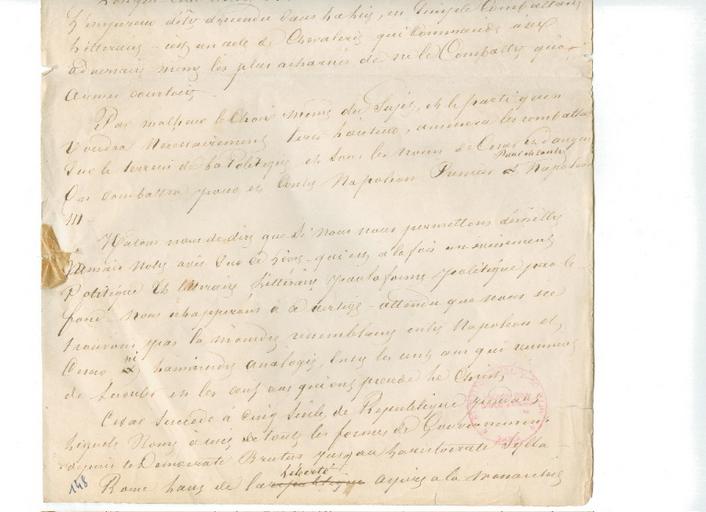 L'Empereur doit descendre dans la lice, en simple combattant
littéraire - c'est un acte de Chevalerie qui commande à ses
adversaires même les plus acharnés de ne le Combattre qu'à
Armes courtoises
Par malheur le Choix même du Sujet, et le parti qu'on
voudra nécessairement tirer l'auteur, amènera les combattants
Sur le terrain de la Politique et Sous les noms de César et d'
On combattra pour et contre Napoléon Premier & Napoléon
III -
Hatons nous de dire que Si nous nous permettons d'émettre
jamais notre avis Sur ce livre - qui est à la fois un événement
Politique Et littéraire littéraire par la forme politique par le
fond - Nous échapperons à - attendu que nous ne
trouvons pas la moindre ressemblance entre Napoléon et
César ni la moindre analogie, entre les cent ans qui viennent
de les cent ans qui ont précédé le Christ,
César Succède à Cinq Siècle de République pendant
lesquels Rome a usé de toutes les formes de Gouvernement
depuis le Démocrate Brutus jusqu'à l'aristocrate Sylla -
Rome lasse de la république liberté aspire à la monarchie
148